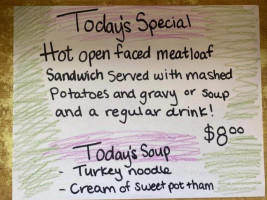 Today's Special
Hot open faced meatloaf
Sandwich Served with mashed
Potatoes and gravy or soup
and a regular drink!
$8.00
Today's Soup
- Turkey noodle
- Cream of sweet pot + ham